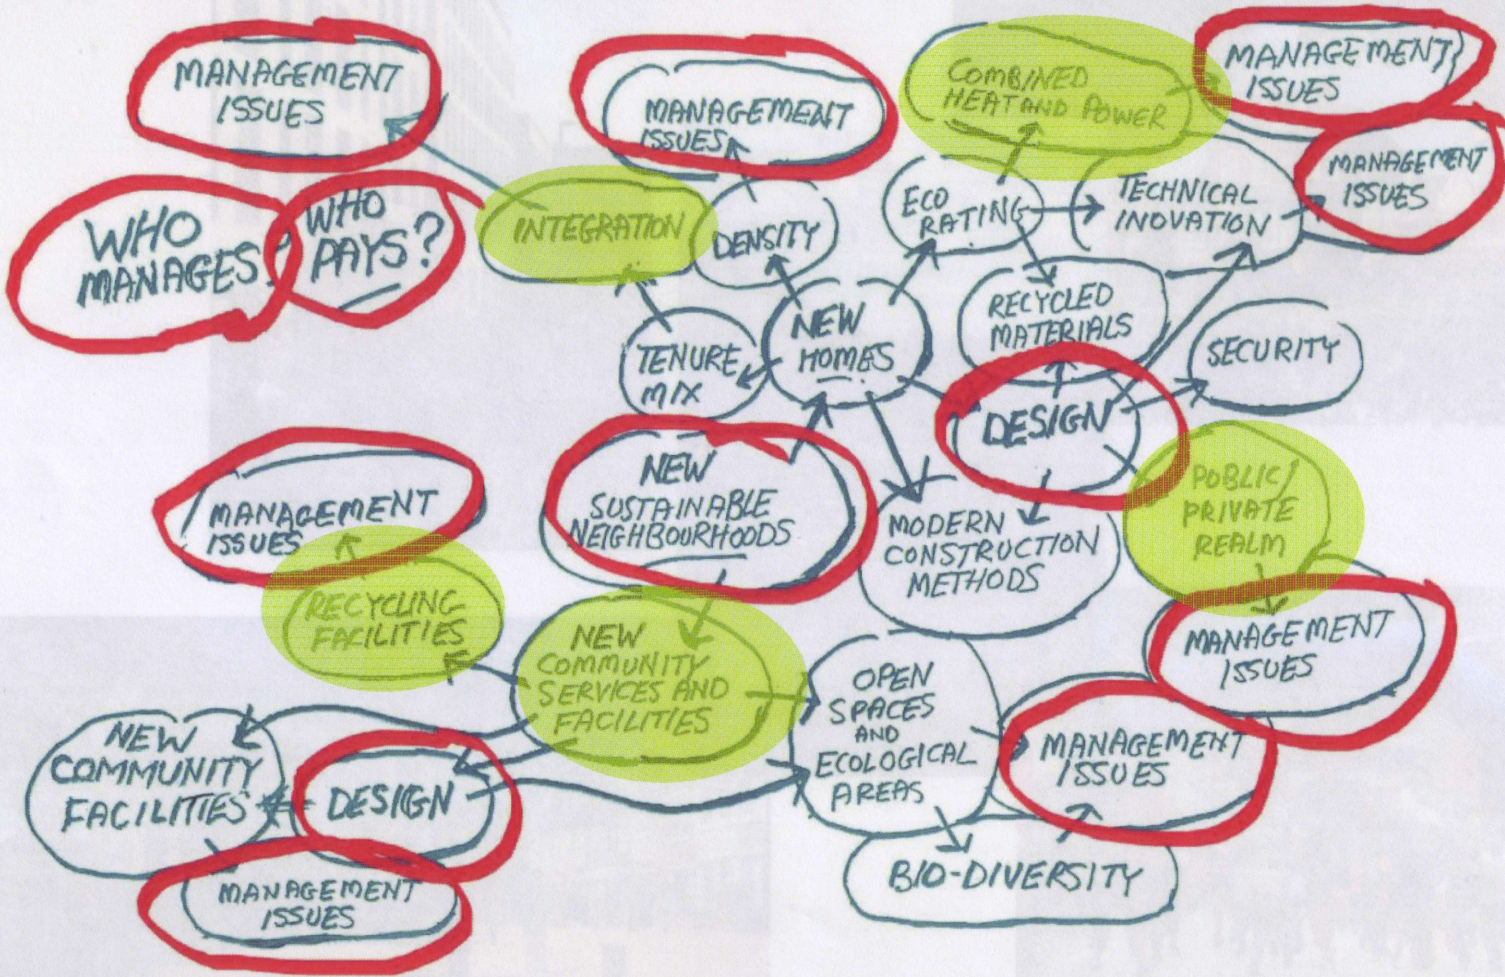 MANAGEMENT
ISSUES
MANAGEMENT
ISSUES
COMBINED
HEAT AND POWER
MANAGEMENT
ISSUES
MANAGEMENT
ISSUES
WHO
MANAGES
WHO
PAYS?
INTEGRATION
DENSITY
ECO
RATING
TECHNICAL
INOVATION
TENURE
MIX
NEW
HOMES
RECYCLED
MATERIALS
SECURITY
DESIGN
MANAGEMENT
ISSUES
NEW
SUSTAINABLE
NEIGHBOURHOODS
MODERN
CONSTRUCTION
METHODS
PUBLIC/
PRIVATE
REALM
RECYCLING
FACILITIES
NEW
COMMUNITY
SERVICES AND
FACILITIES
OPEN
SPACES
AND
ECOLOGICAL
AREAS
MANAGEMENT
ISSUES
MANAGEMENT
ISSUES
NEW
COMMUNITY
FACILITIES
DESIGN
BIO-DIVERSITY
MANAGEMENT
ISSUES